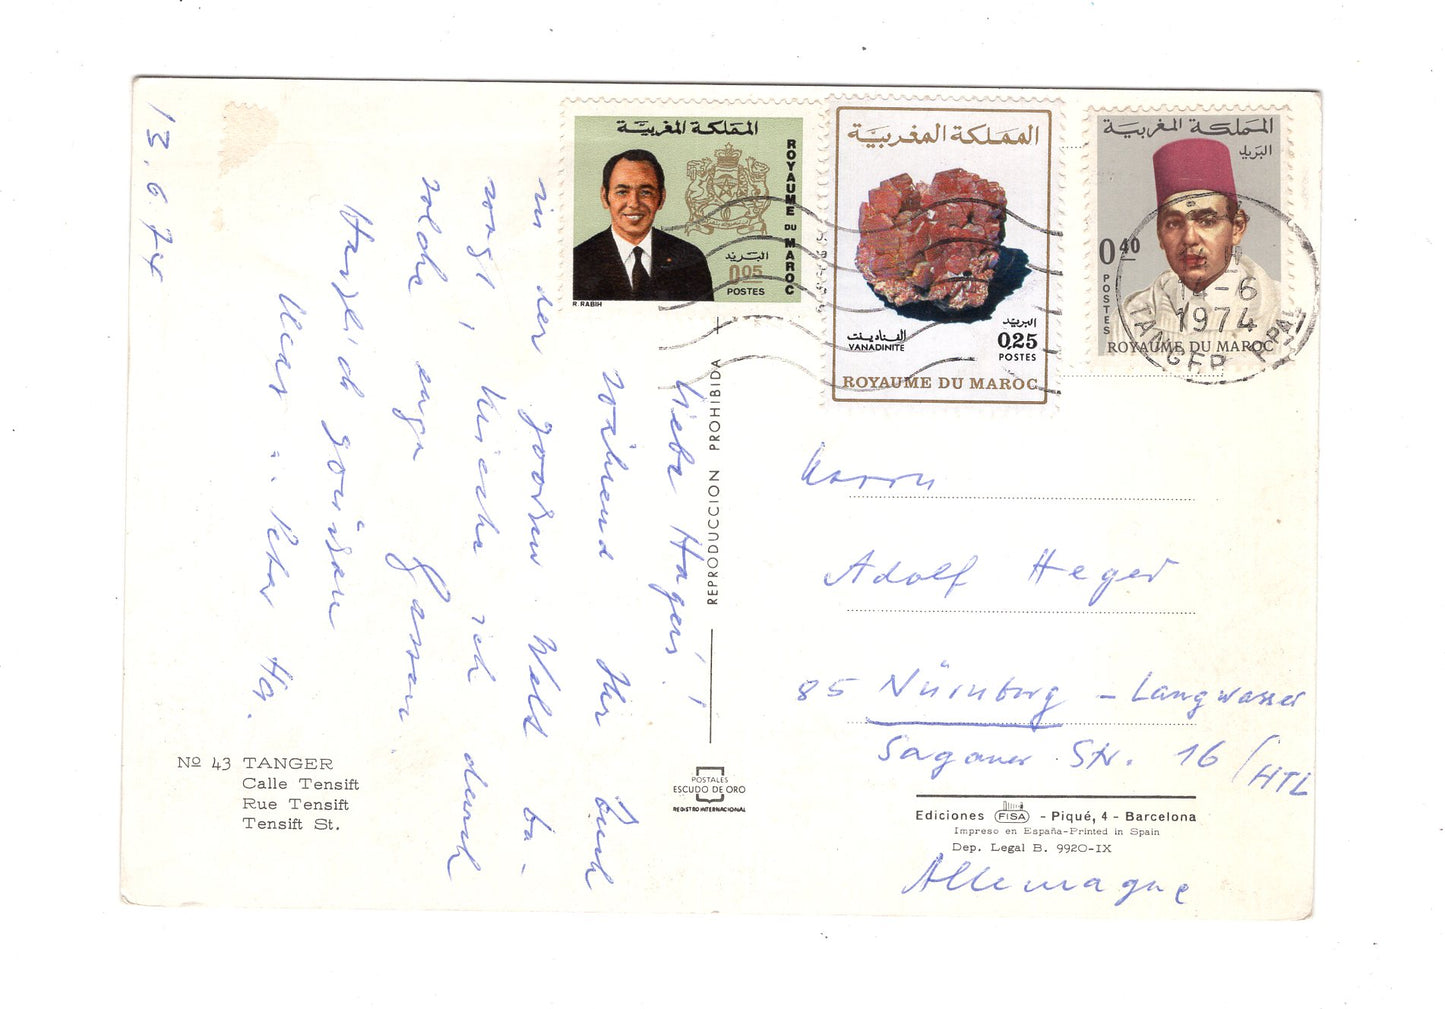 13.6.74
المملكة المغربية
ROYAUME DU MAROC
البريد
0.05
POSTES
R. RABIH
المملكة المغربية
الفنادينت
VANADINITE
البريد
0,25
POSTES
ROYAUME DU MAROC
المملكة المغربية
البريد
0 40
POSTES
ROYAUME DU MAROC
14-6
1974
TANGER PPAL
Liebe Hegers!
Während Ihr Euch
in der großen Welt be-
wegt, krieche ich durch
solche enge Gassen.
Herzlich grüßen
Peter
REPRODUCCION PROHIBIDA
Herrn
Adolf Heger
85 Nürnberg - Langwasser
Saganer Str. 16 / HTL
Allemagne
Nº 43 TANGER
Calle Tensift
Rue Tensift
Tensift St.
POSTALES
ESCUDO DE ORO
REGISTRO INTERNACIONAL
Ediciones FISA - Piqué, 4 - Barcelona
Impreso en España-Printed in Spain
Dep. Legal B. 9920-IX